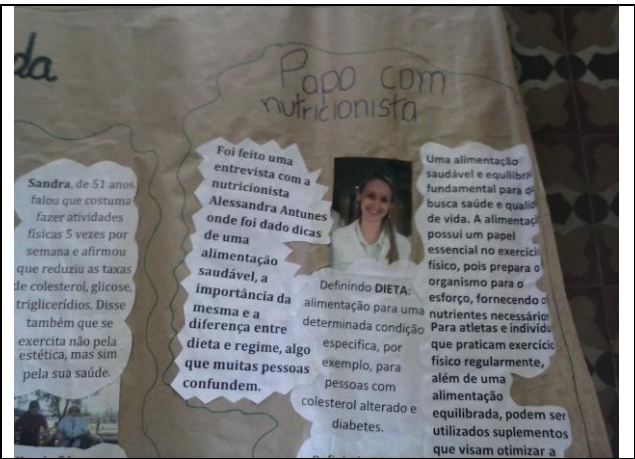 da
Papo com
nutricionista
Sandra, de 51 anos
falou que costuma
fazer atividades
físicas 5 vezes por
semana e afirmou
que reduziu as taxas
de colesterol, glicose,
triglicerídios. Disse
também que se
exercita não pela
estética, mas sim
pela sua saúde.
Foi feito uma
entrevista com a
nutricionista
Alessandra Antunes
onde foi dado dicas
de uma
alimentação
saudável, a
importância da
mesma e a
diferença entre
dieta e regime, algo
que muitas pessoas
confundem.
Definindo DIETA:
alimentação para uma
determinada condição
especifica, por
exemplo, para
pessoas com
colesterol alterado e
diabetes.
Uma alimentação
saudável e
fundamental para
busca saúde e
de vida. A
possui um papel
essencial no
físico, pois prepara o
organismo para o
esforço, fornecendo
nutrientes
Para atletas e
que praticam
físico regularmente,
além de uma
alimentação
equilibrada, podem ser
utilizados suplementos
que visam otimizar a